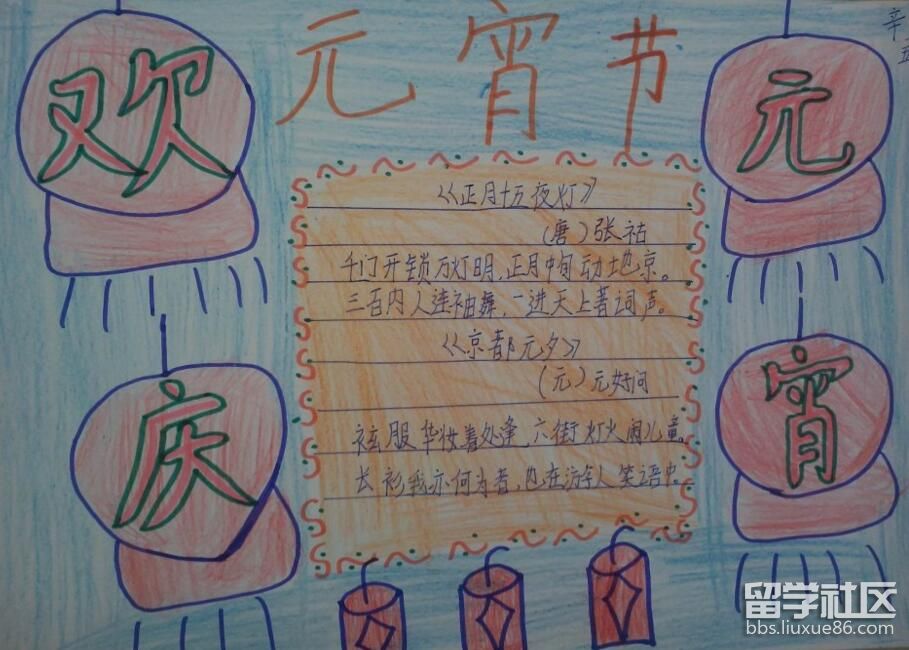 元宵节
欢
庆
元
宵
《正月十五夜灯》
(唐)张祜
千门开锁万灯明,正月中旬动地京。
三百内人连袖舞,一进天上著词声。
《京都元夕》
(元)元好问
袨服华妆着处逢,六街灯火闹儿童。
长衫我亦何为者,也在游人笑语中。
辛
留学社区
bbs.liuxue86.com